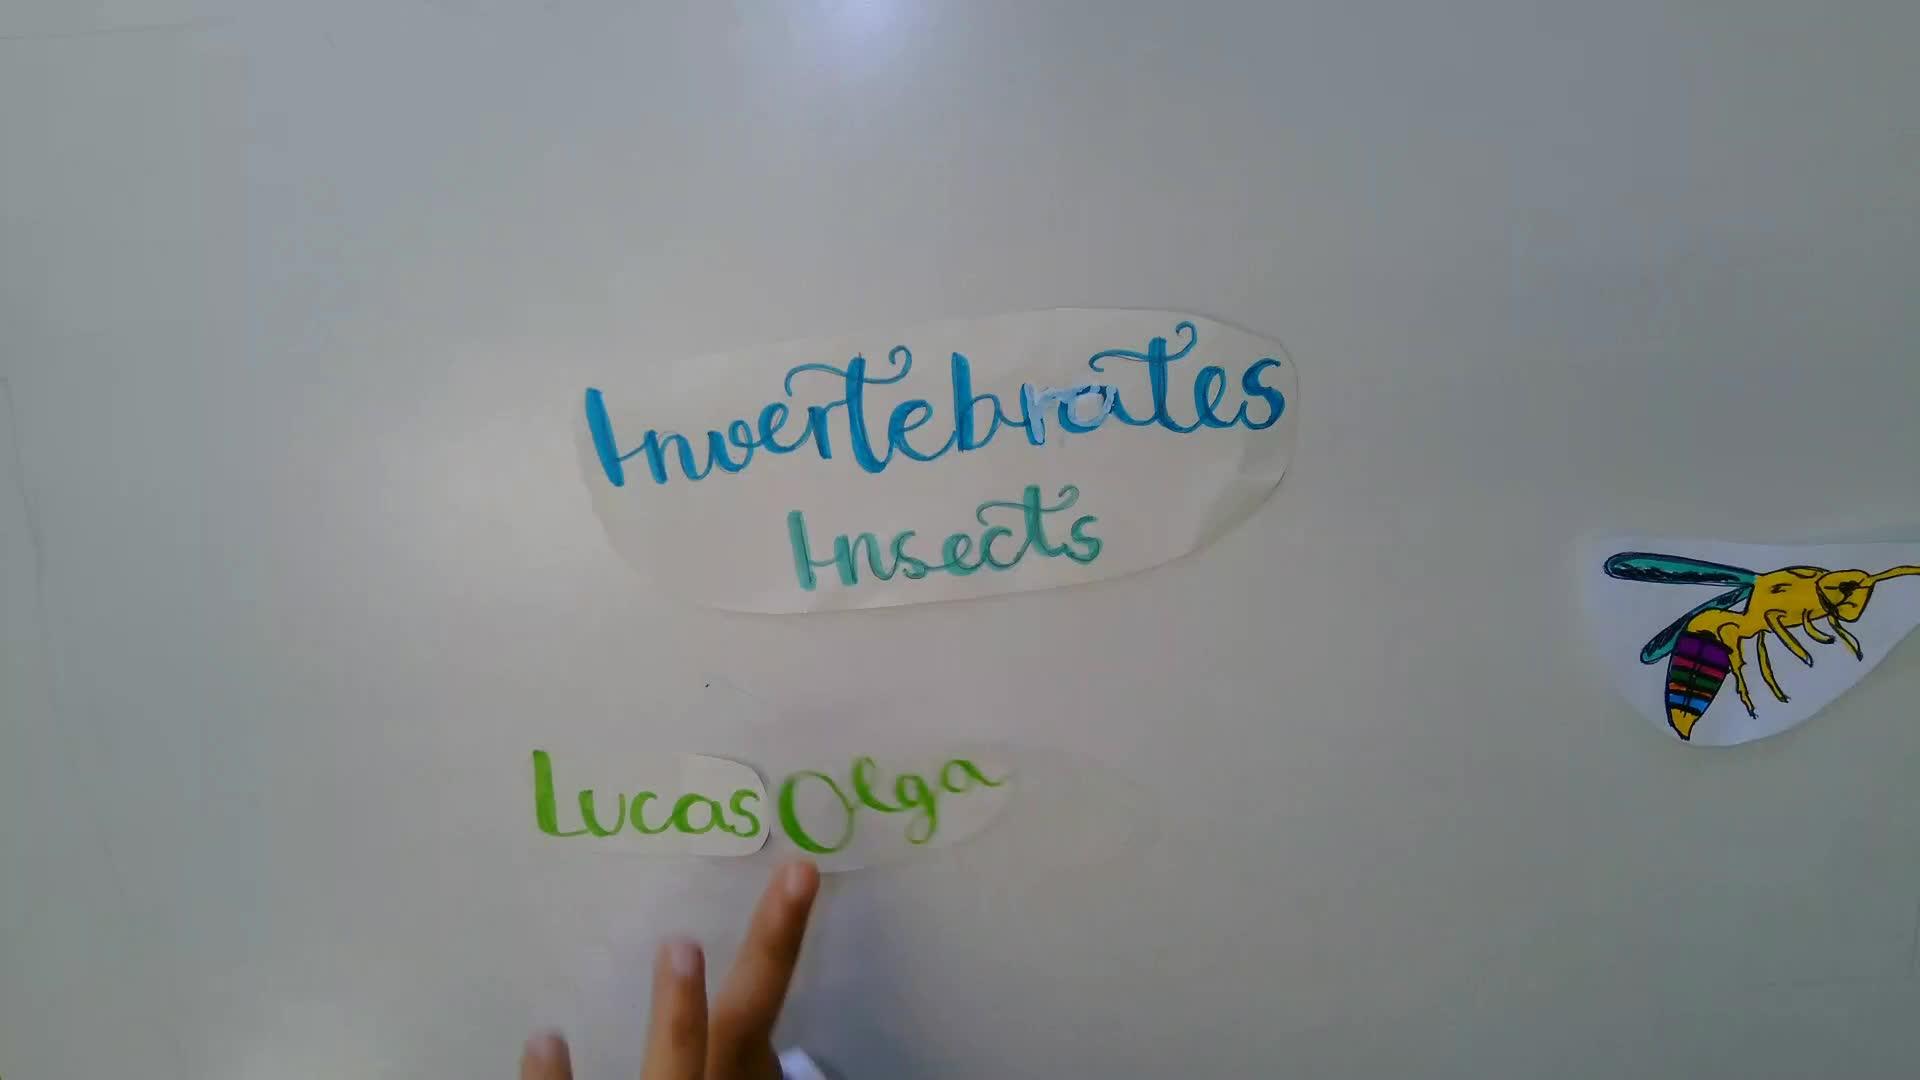 Invertebrates
Insects
Lucas Olga